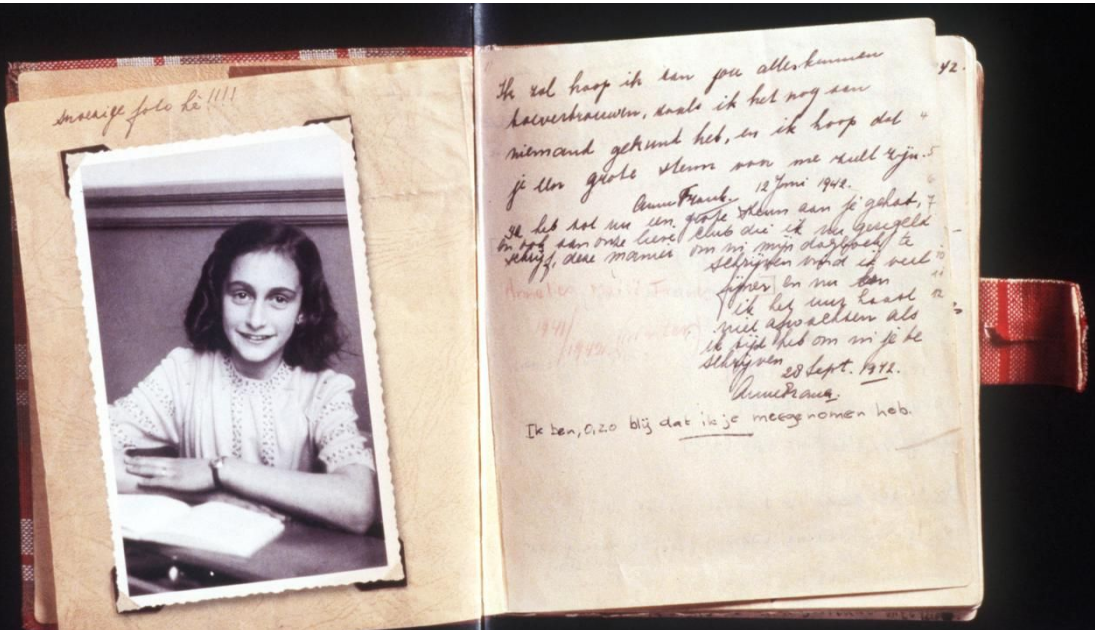 snoezige foto hè!!!!
Ik zal hoop ik aan jou alles kunnen
toevertrouwen, zoals ik het nog aan
niemand gekund heb, en ik hoop dat
je een grote steun voor me zult zijn.
Anne Frank. 12 Juni 1942.
Ik heb tot nu een grote steun aan je gehad,
en ook aan onze lieve club die ik nu geregeld
schrijf, deze manier om in mijn dagboek te
schrijven vind ik veel
fijner en nu kan
ik het uur haast
niet afwachten als
ik tijd heb om in je te
schrijven.
28 Sept. 1942.
Anne Frank.
Ik ben, O, zo blij dat ik je meegenomen heb.
42.